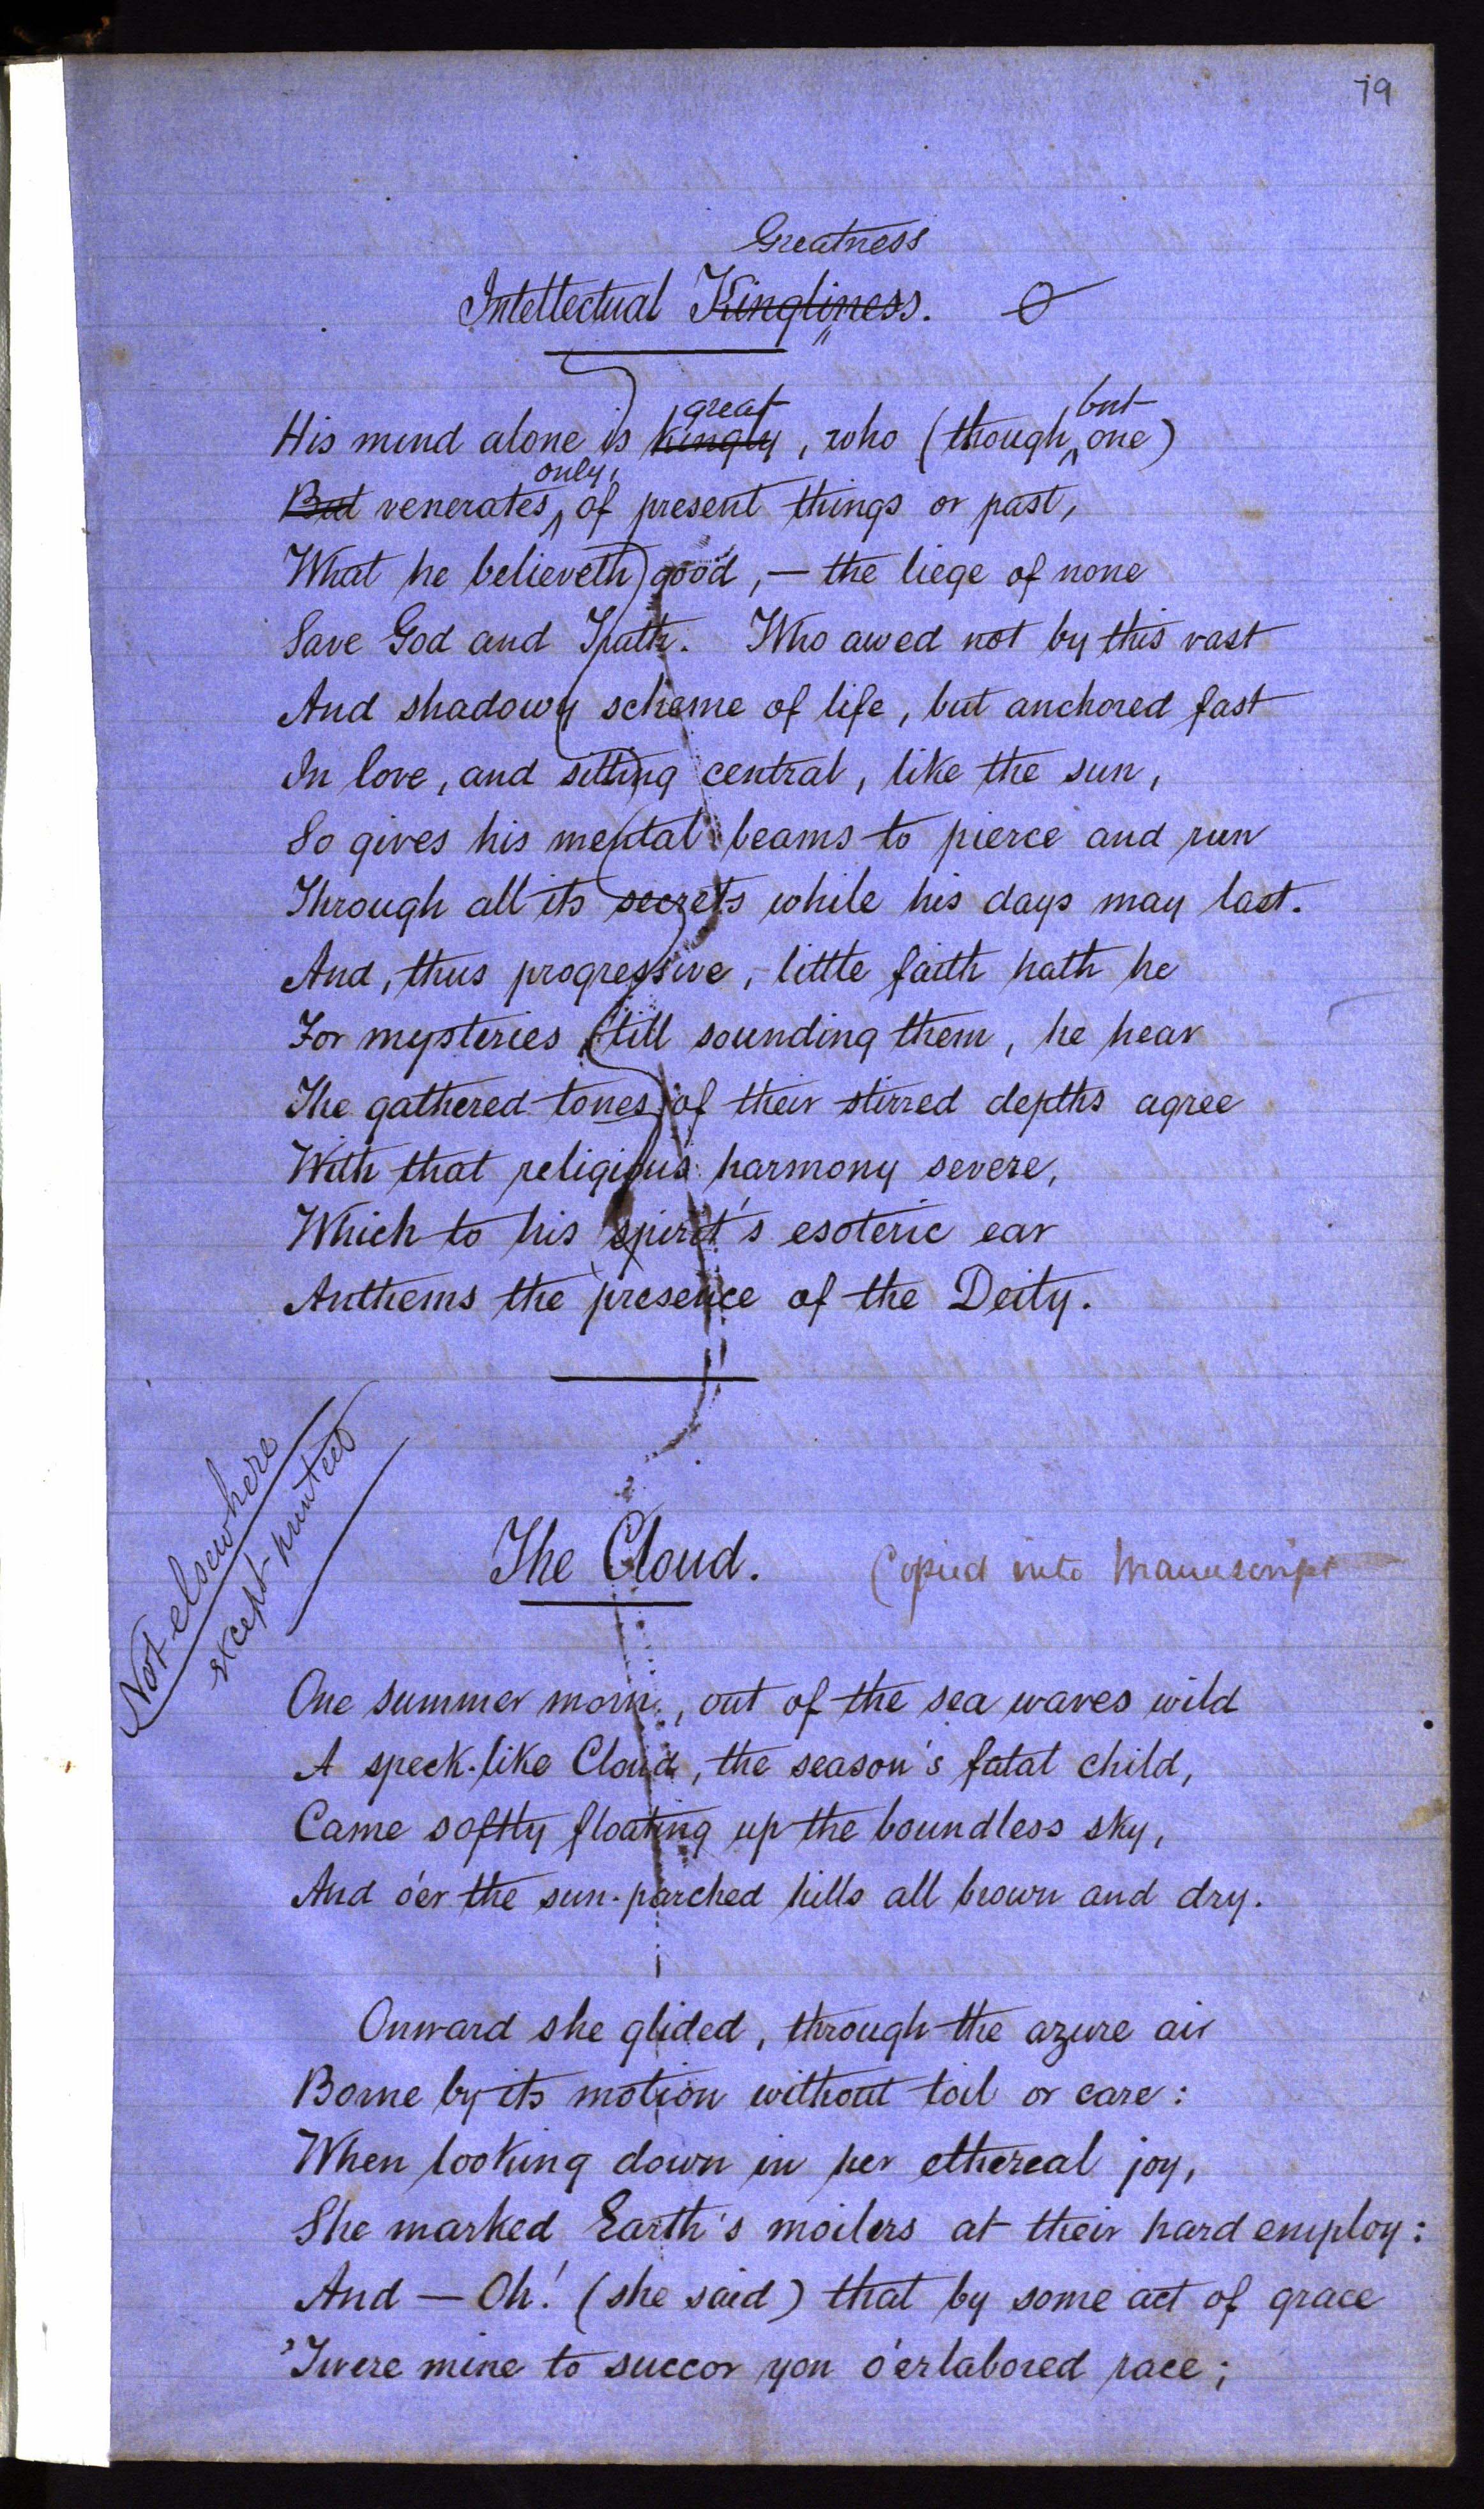 79
Greatness
Intellectual Kingliness.
great but
His mind alone is kingly, who (though one)
only,
But venerates, of present things or past,
What he believeth good, — the liege of none
Save God and Truth. Who awed not by this vast
And shadowy scheme of life, but anchored fast
In love, and sitting central, like the sun,
So gives his mental beams to pierce and run
Through all its secrets while his days may last.
And, thus progressive, little faith hath he
For mysteries till sounding them, he hear
The gathered tones of their stirred depths agree
With that religious harmony severe,
Which to his spirit's esoteric ear
Anthems the presence of the Deity.
Not elsewhere
except printed
The Cloud. Copied into Manuscript
One summer morn, out of the sea waves wild
A speck-like Cloud, the season's fatal child,
Came softly floating up the boundless sky,
And o'er the sun-parched hills all brown and dry.
Onward she glided, through the azure air
Borne by its motion without toil or care:
When looking down in her ethereal joy,
She marked Earth's moilers at their hard employ:
And — Oh! (she said) that by some act of grace
'Twere mine to succor yon o'erlabored race;